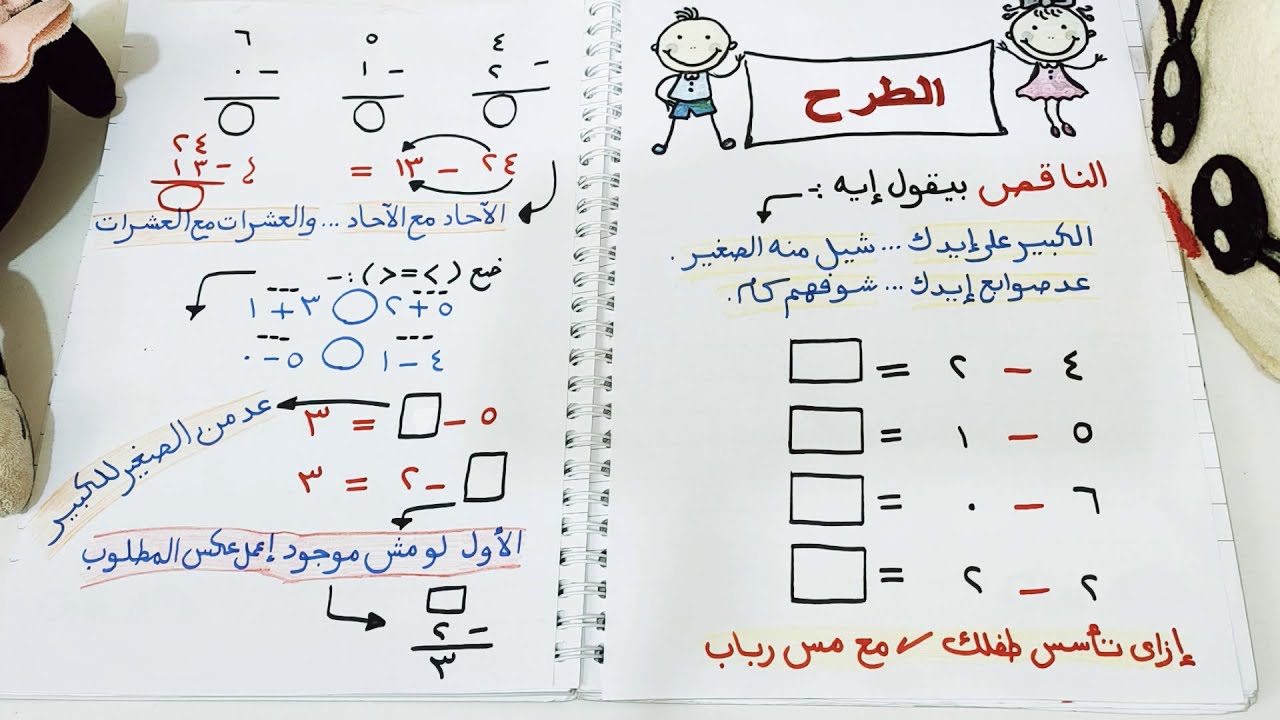 الطرح
الناقص بيقول إيه :-
الكبير على إيدك ... شيل منه الصغير .
عد صوابع إيدك ... شوفهم كام .
٤ - ٢ =
٥ - ١ =
٦ - ٠ =
٢ - ٢ =
إزاى تأسس طفلك ✓ مع مس رباب
٤ ٥ ٦
- ٢ - ١ - ٠
٢٤ - ١٣ =
٢٤
- ١٣
الآحاد مع الآحاد ... والعشرات مع العشرات
ضع ( > = < ) :-
٥ + ٢ ٣ + ١
٤ - ١ ٥ - ٠
٥ - = ٣
عد من الصغير للكبير
- ٢ = ٣
الأول لو مش موجود إعمل عكس المطلوب
- ٢
٣